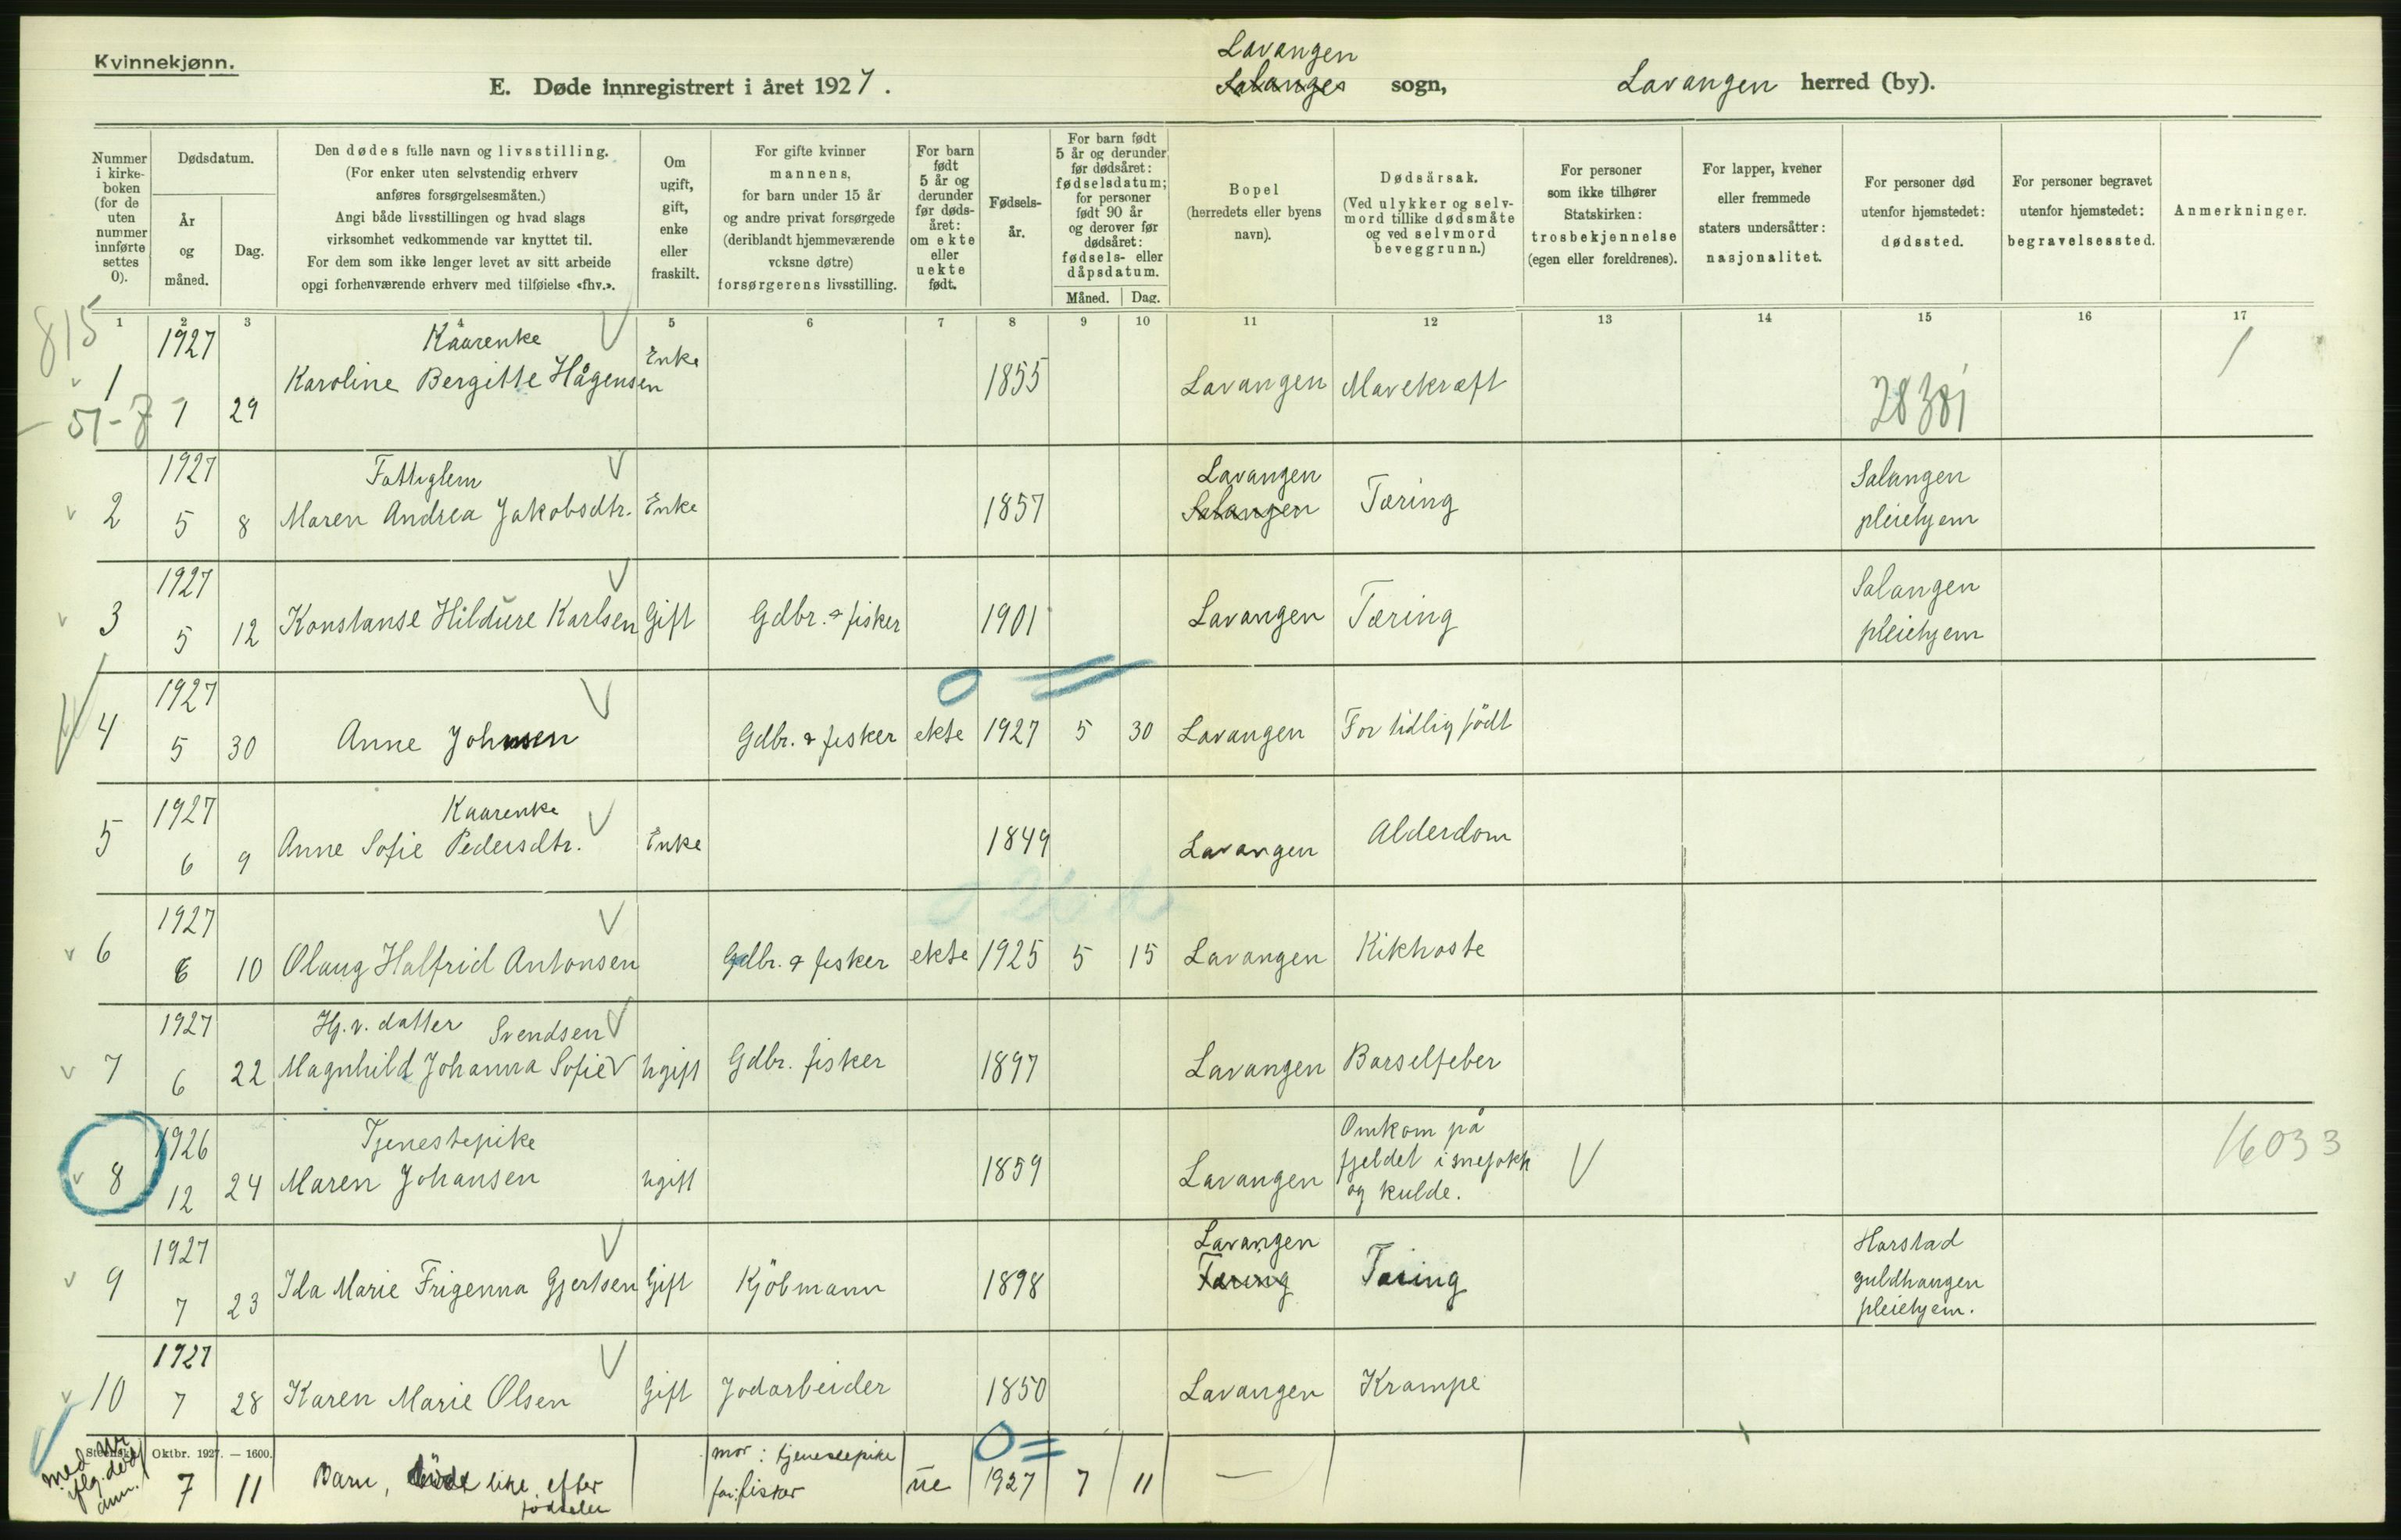 Kvinnekjønn.
E. Døde innregistrert i året 1927.
Lavangen
Salanges sogn,
Lavangen herred (by).
Nummer i kirke-boken (for de uten nummer innførte settes 0).
Dødsdatum.
År og måned.
Dag.
Den dødes fulle navn og livsstilling.
(For enker uten selvstendig erhverv
anføres forsørgelsesmåten.)
Angi både livsstillingen og hvad slags
virksomhet vedkommende var knyttet til.
For dem som ikke lenger levet av sitt arbeide
opgi forhenværende erhverv med tilføielse «fhv.».
Om ugift, gift, enke eller fraskilt.
For gifte kvinner
mannens,
for barn under 15 år
og andre privat forsørgede
(deriblandt hjemmeværende
voksne døtre)
forsørgerens livsstilling.
For barn født 5 år og derunder før døds-året: om ekte eller uekte født.
Fødsels-år.
For barn født
5 år og derunder
før dødsåret:
fødselsdatum;
for personer
født 90 år
og derover før
dødsåret:
fødsels- eller
dåpsdatum.
Måned. Dag.
Bopel
(herredets eller byens
navn).
Dødsårsak.
(Ved ulykker og selv-
mord tillike dødsmåte
og ved selvmord
beveggrunn.)
For personer
som ikke tilhører
Statskirken:
trosbekjennelse
(egen eller foreldrenes).
For lapper, kvener
eller fremmede
staters undersåtter:
nasjonalitet.
For personer død
utenfor hjemstedet:
dødssted.
For personer begravet
utenfor hjemstedet:
begravelsessted.
Anmerkninger.
1 2 3 4 5 6 7 8 9 10 11 12 13 14 15 16 17
815
51-7
1927
Kaarenke
1 1 29 Karoline Bergitte Hågensen Enke 1855 Lavangen Mavekræft
28381
1927
Fattiglem
Lavangen
Salangen
2 5 8 Maren Andrea Jakobsdtr. Enke 1857 Salangen Tæring pleiehjem
1927
Salangen
3 5 12 Konstanse Hildure Karlsen Gift Gdbr. & fisker 1901 Lavangen Tæring pleiehjem
1927
0 =
4 5 30 Anne Johnsen Gdbr. & fisker ekte 1927 5 30 Lavangen For tidlig født
1927
Kaarenke
5 6 9 Anne Sofie Pedersdtr. Enke 1849 Lavangen Alderdom
1927
6 6 10 Olaug Halfrid Antonsen Gdbr. & fisker ekte 1925 5 15 Lavangen Kikhoste
1927
Hj.v. datter Svendsen
7 6 22 Magnhild Johanna Sofie Ugift Gdbr. fisker 1897 Lavangen Barselfeber
1926
Tjenestepike
Omkom på
fjeldet i snefokk
og kulde.
8 12 24 Maren Johansen Ugift 1859 Lavangen
16033
1927
Lavangen
Harstad
guldhaugen
pleiehjem.
9 7 23 Ida Marie Frigenna Gjertsen Gift Kjöbmann 1898 Tæring Tæring
1927
10 7 28 Karen Marie Olsen Gift Jodarbeider 1850 Lavangen Krampe
Oktbr. 1927. — 1600.
0 =
mor: tjenestepike
7 11 Barn, døde like efter
fødselen
far: fisker ue 1927 7 11 —